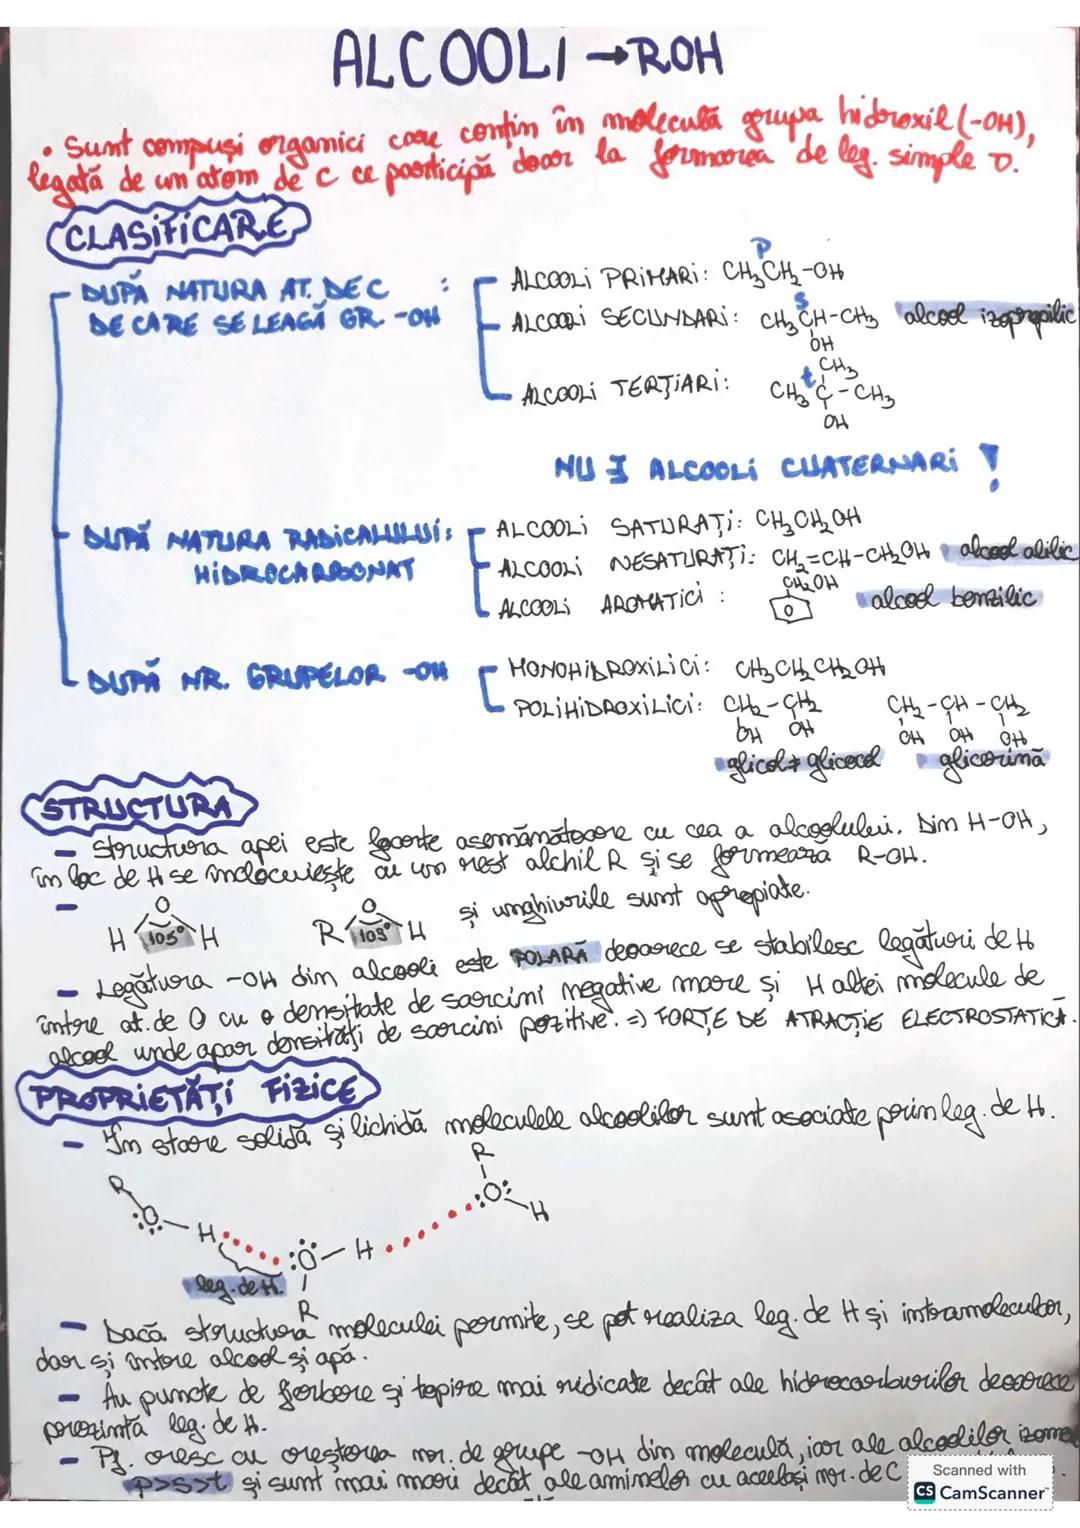 ALCOOLI → ROH
• Sunt compuși organici care conțin în moleculă grupa hidroxil (-OH),
legată de un atom de C ce participă doar la formarea de leg. simple σ.
CLASIFICARE
DUPĂ NATURA AT. DE C :
DE CARE SE LEAGĂ GR. -OH
ALCOOLI PRIMARI: CH₃CH₂-OH
p
ALCOOLI SECUNDARI: CH₃CH-CH₃ alcool izopropilic
s
OH
ALCOOLI TERȚIARI: CH₃C-CH₃
t
CH₃
OH
NU ∃ ALCOOLI CUATERNARI !
DUPĂ NATURA RADICALULUI:
HIDROCARBONAT
ALCOOLI SATURAȚI: CH₃CH₂OH
ALCOOLI NESATURAȚI: CH₂=CH-CH₂OH alcool alilic
ALCOOLI AROMATICI : CH₂OH alcool benzilic
DUPĂ NR. GRUPELOR -OH
MONOHIDROXILICI: CH₃CH₂CH₂OH
POLIHIDROXILICI: CH₂-CH₂ CH₂-CH-CH₂
OH OH OH OH OH
glicol ≠ glicocol glicerină
STRUCTURA
- Structura apei este foarte asemănătoare cu cea a alcoolului. Din H-OH,
în loc de H se înlocuiește cu un rest alchil R și se formează R-OH.
- O O și unghiurile sunt apropiate.
H 105° H R 109° H
- Legătura -OH din alcooli este POLARĂ deoarece se stabilesc legături de H
între at. de O cu o densitate de sarcini negative mare și H altei molecule de
alcool unde apar densități de sarcini pozitive. => FORȚE DE ATRACȚIE ELECTROSTATICĂ.
PROPRIETĂȚI FIZICE
- În stare solidă și lichidă moleculele alcoolilor sunt asociate prin leg. de H.
R
R :O:
:O - H :O - H H
leg. de H.
R
- Dacă structura moleculei permite, se pot realiza leg. de H și intramolecular,
dar și între alcool și apă.
- Au puncte de fierbere și topire mai ridicate decât ale hidrocarburilor deoarece
prezintă leg. de H.
- Pf. cresc cu creșterea nr. de grupe -OH din moleculă, iar ale alcoolilor
p>s>t și sunt mai mari decât ale aminelor cu același nr. de C
Scanned with
CS CamScanner